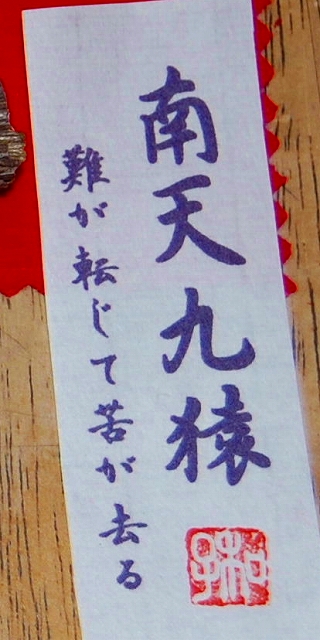 南天九猿
難が転じて苦が去る